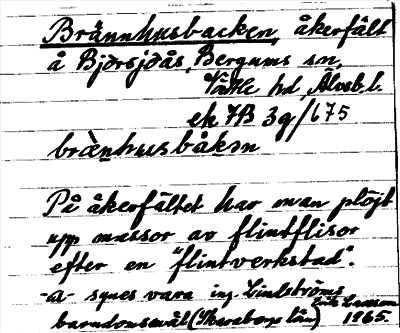 Brännhusbacken, åkerfält
å Björsjöås, Bergums sn,
Vättle hd, Älvsb. l.
ek 7B 3g/675
brànhusbåkən
På åkerfältet har man plöjt
upp massor av flintflisor
efter en "flintverkstad".
-a- synes vara ing. Lindströms
barndomsmål (Skaraborgs län)
Erik Larsson
1965.